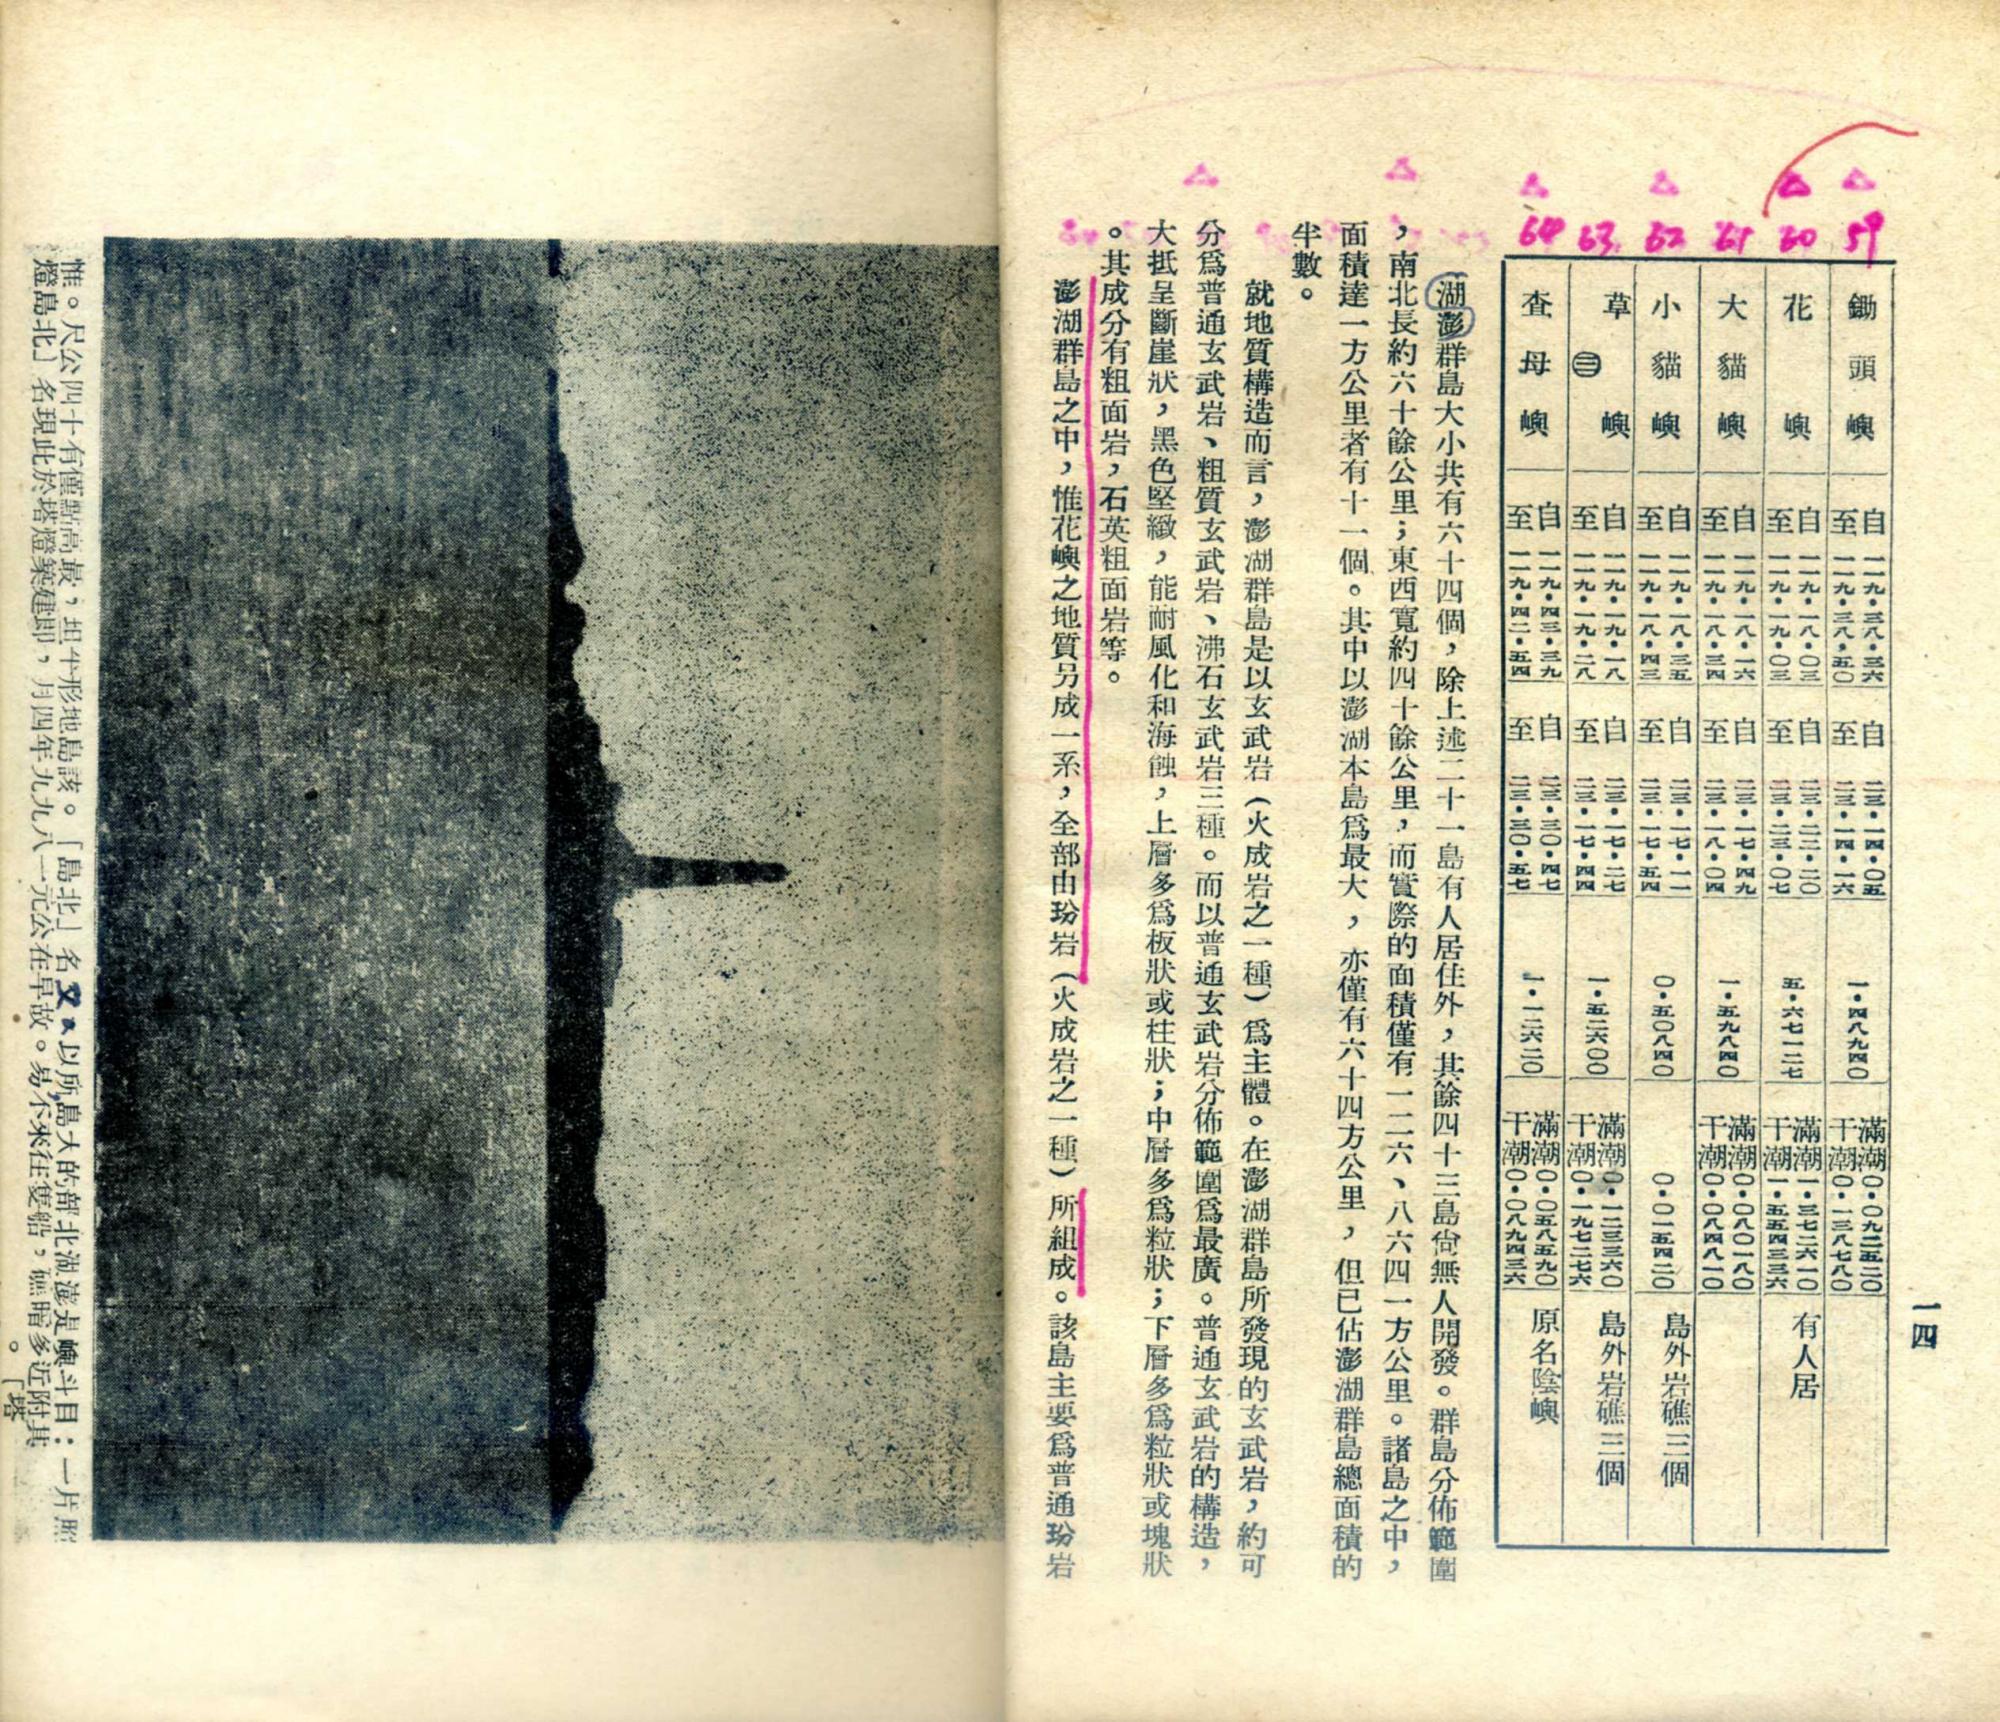 一四
59
鋤頭嶼
自一一九・三八・三六
至一一九・三八・五〇
自二三・一四・〇五
至二三・一四・一六
一・四八九四〇
滿潮〇・〇九二五二〇
干潮〇・一三八七八〇
60
花嶼
自一一九・一八・〇三
至一一九・一九・〇三
自二三・二二・二〇
至二三・二三・〇七
五・六七一二七
滿潮一・三七二六一〇
干潮一・五五四三三六
有人居
61
大貓嶼
自一一九・一八・一六
至一一九・一八・三四
自二三・一七・四九
至二三・一八・〇四
一・五九八四〇
滿潮〇・〇八〇一八〇
干潮〇・〇八四八一〇
62
小貓嶼
自一一九・一八・三五
至一一九・一八・四三
自二三・一七・一一
至二三・一七・五四
〇・五〇八四〇
〇・〇一五四二〇
島外岩礁三個
63
草嶼㊂
自一一九・一九・一八
至一一九・一九・二八
自二三・一七・二七
至二三・一七・四四
一・五二六〇〇
滿潮〇・一二三三六〇
干潮〇・一九七二七六
島外岩礁三個
64
查母嶼
自一一九・四三・三九
至一一九・四二・五四
自二三・三〇・四七
至二三・三〇・五七
一・一二六二〇
滿潮〇・〇五八五九〇
干潮〇・〇八九四三六
原名陰嶼
湖澎群島大小共有六十四個，除上述二十一島有人居住外，其餘四十三島尙無人開發。群島分佈範圍
，南北長約六十餘公里；東西寬約四十餘公里，而實際的面積僅有一二六、八六四一方公里。諸島之中，
面積達一方公里者有十一個。其中以澎湖本島爲最大，亦僅有六十四方公里，但已佔澎湖群島總面積的
半數。
就地質構造而言，澎湖群島是以玄武岩（火成岩之一種）爲主體。在澎湖群島所發現的玄武岩，約可
分爲普通玄武岩、粗質玄武岩、沸石玄武岩三種。而以普通玄武岩分佈範圍爲最廣。普通玄武岩的構造，
大抵呈斷崖狀，黑色堅緻，能耐風化和海蝕，上層多爲板狀或柱狀；中層多爲粒狀；下層多爲粒狀或塊狀
。其成分有粗面岩，石英粗面岩等。
澎湖群島之中，惟花嶼之地質另成一系，全部由玢岩（火成岩之一種）所組成。該島主要爲普通玢岩
照片一：目斗嶼是澎湖北部的大島，所以又名「北島」。該島地形平坦，最高點僅有十四公尺。惟
其附近多暗礁，船隻往來不易。故早在公元一八九九年四月，卽建築燈塔於此現名「北島燈
塔」。